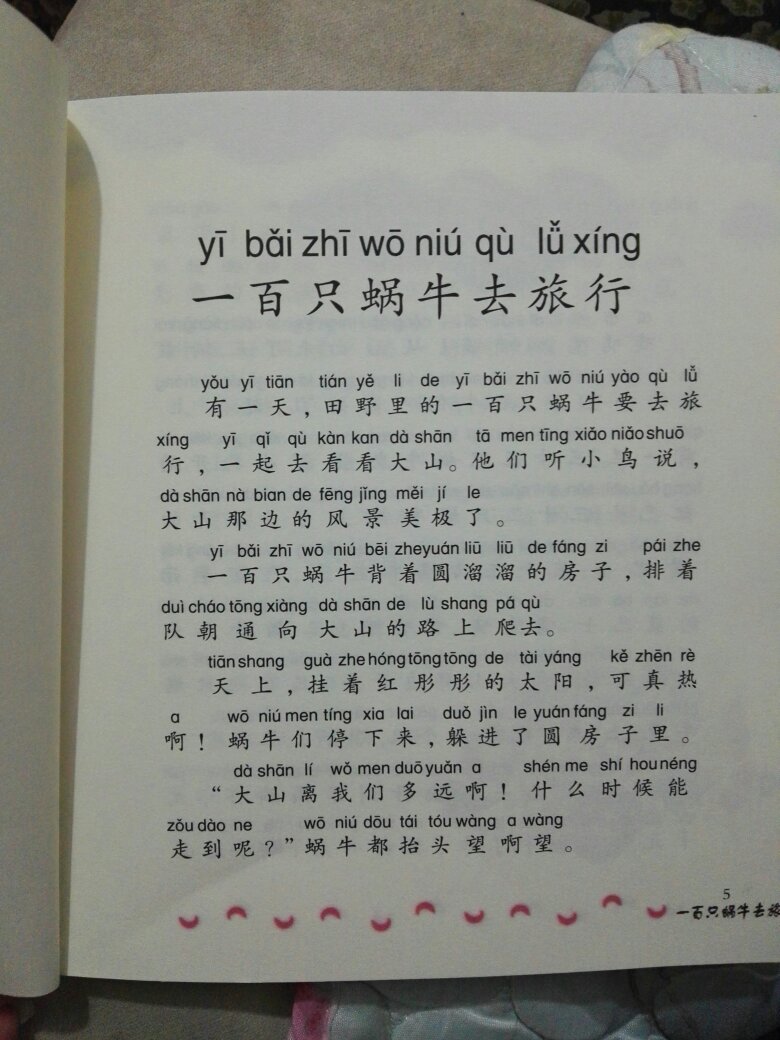 yī bǎi zhī wō niú qù lǚ xíng
一百只蜗牛去旅行
yǒu yī tiān tián yě li de yī bǎi zhī wō niú yào qù lǚ
有一天，田野里的一百只蜗牛要去旅
xíng yī qǐ qù kàn kan dà shān tā men tīng xiǎo niǎo shuō
行，一起去看看大山。他们听小鸟说，
dà shān nà bian de fēng jǐng měi jí le
大山那边的风景美极了。
yī bǎi zhī wō niú bēi zhe yuán liū liū de fáng zi pái zhe
一百只蜗牛背着圆溜溜的房子，排着
duì cháo tōng xiàng dà shān de lù shang pá qù
队朝通向大山的路上爬去。
tiān shang guà zhe hóng tōng tōng de tài yáng kě zhēn rè
天上，挂着红彤彤的太阳，可真热
a wō niú men tíng xia lai duǒ jìn le yuán fáng zi li
啊！蜗牛们停下来，躲进了圆房子里。
dà shān lí wǒ men duō yuǎn a shén me shí hou néng
“大山离我们多远啊！什么时候能
zǒu dào ne wō niú dōu tái tóu wàng a wàng
走到呢？”蜗牛都抬头望啊望。
5
一百只蜗牛去旅